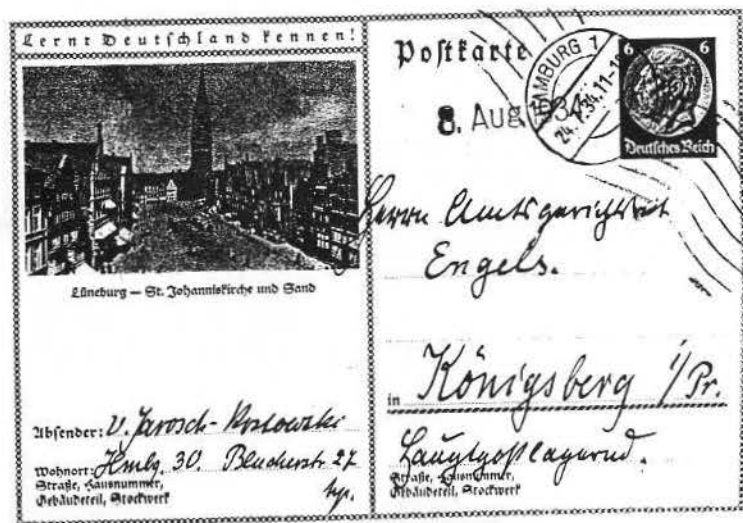 Lernt Deutschland kennen!
Lüneburg — St. Johanniskirche und Sand
Absender: V. Jarosch-
Wohnort: Hmbg. 30. Blücherstr. 27
Straße, Hausnummer,
Gebäudeteil, Stockwerk
Postkarte
HAMBURG 1
24.7.34.11-1
8. Aug. 1934
6 6
Deutsches Reich
Herrn Amtsgerichtsrat
Engels.
in Königsberg i/Pr.
Hauptpostlagernd.
Straße, Hausnummer,
Gebäudeteil, Stockwerk